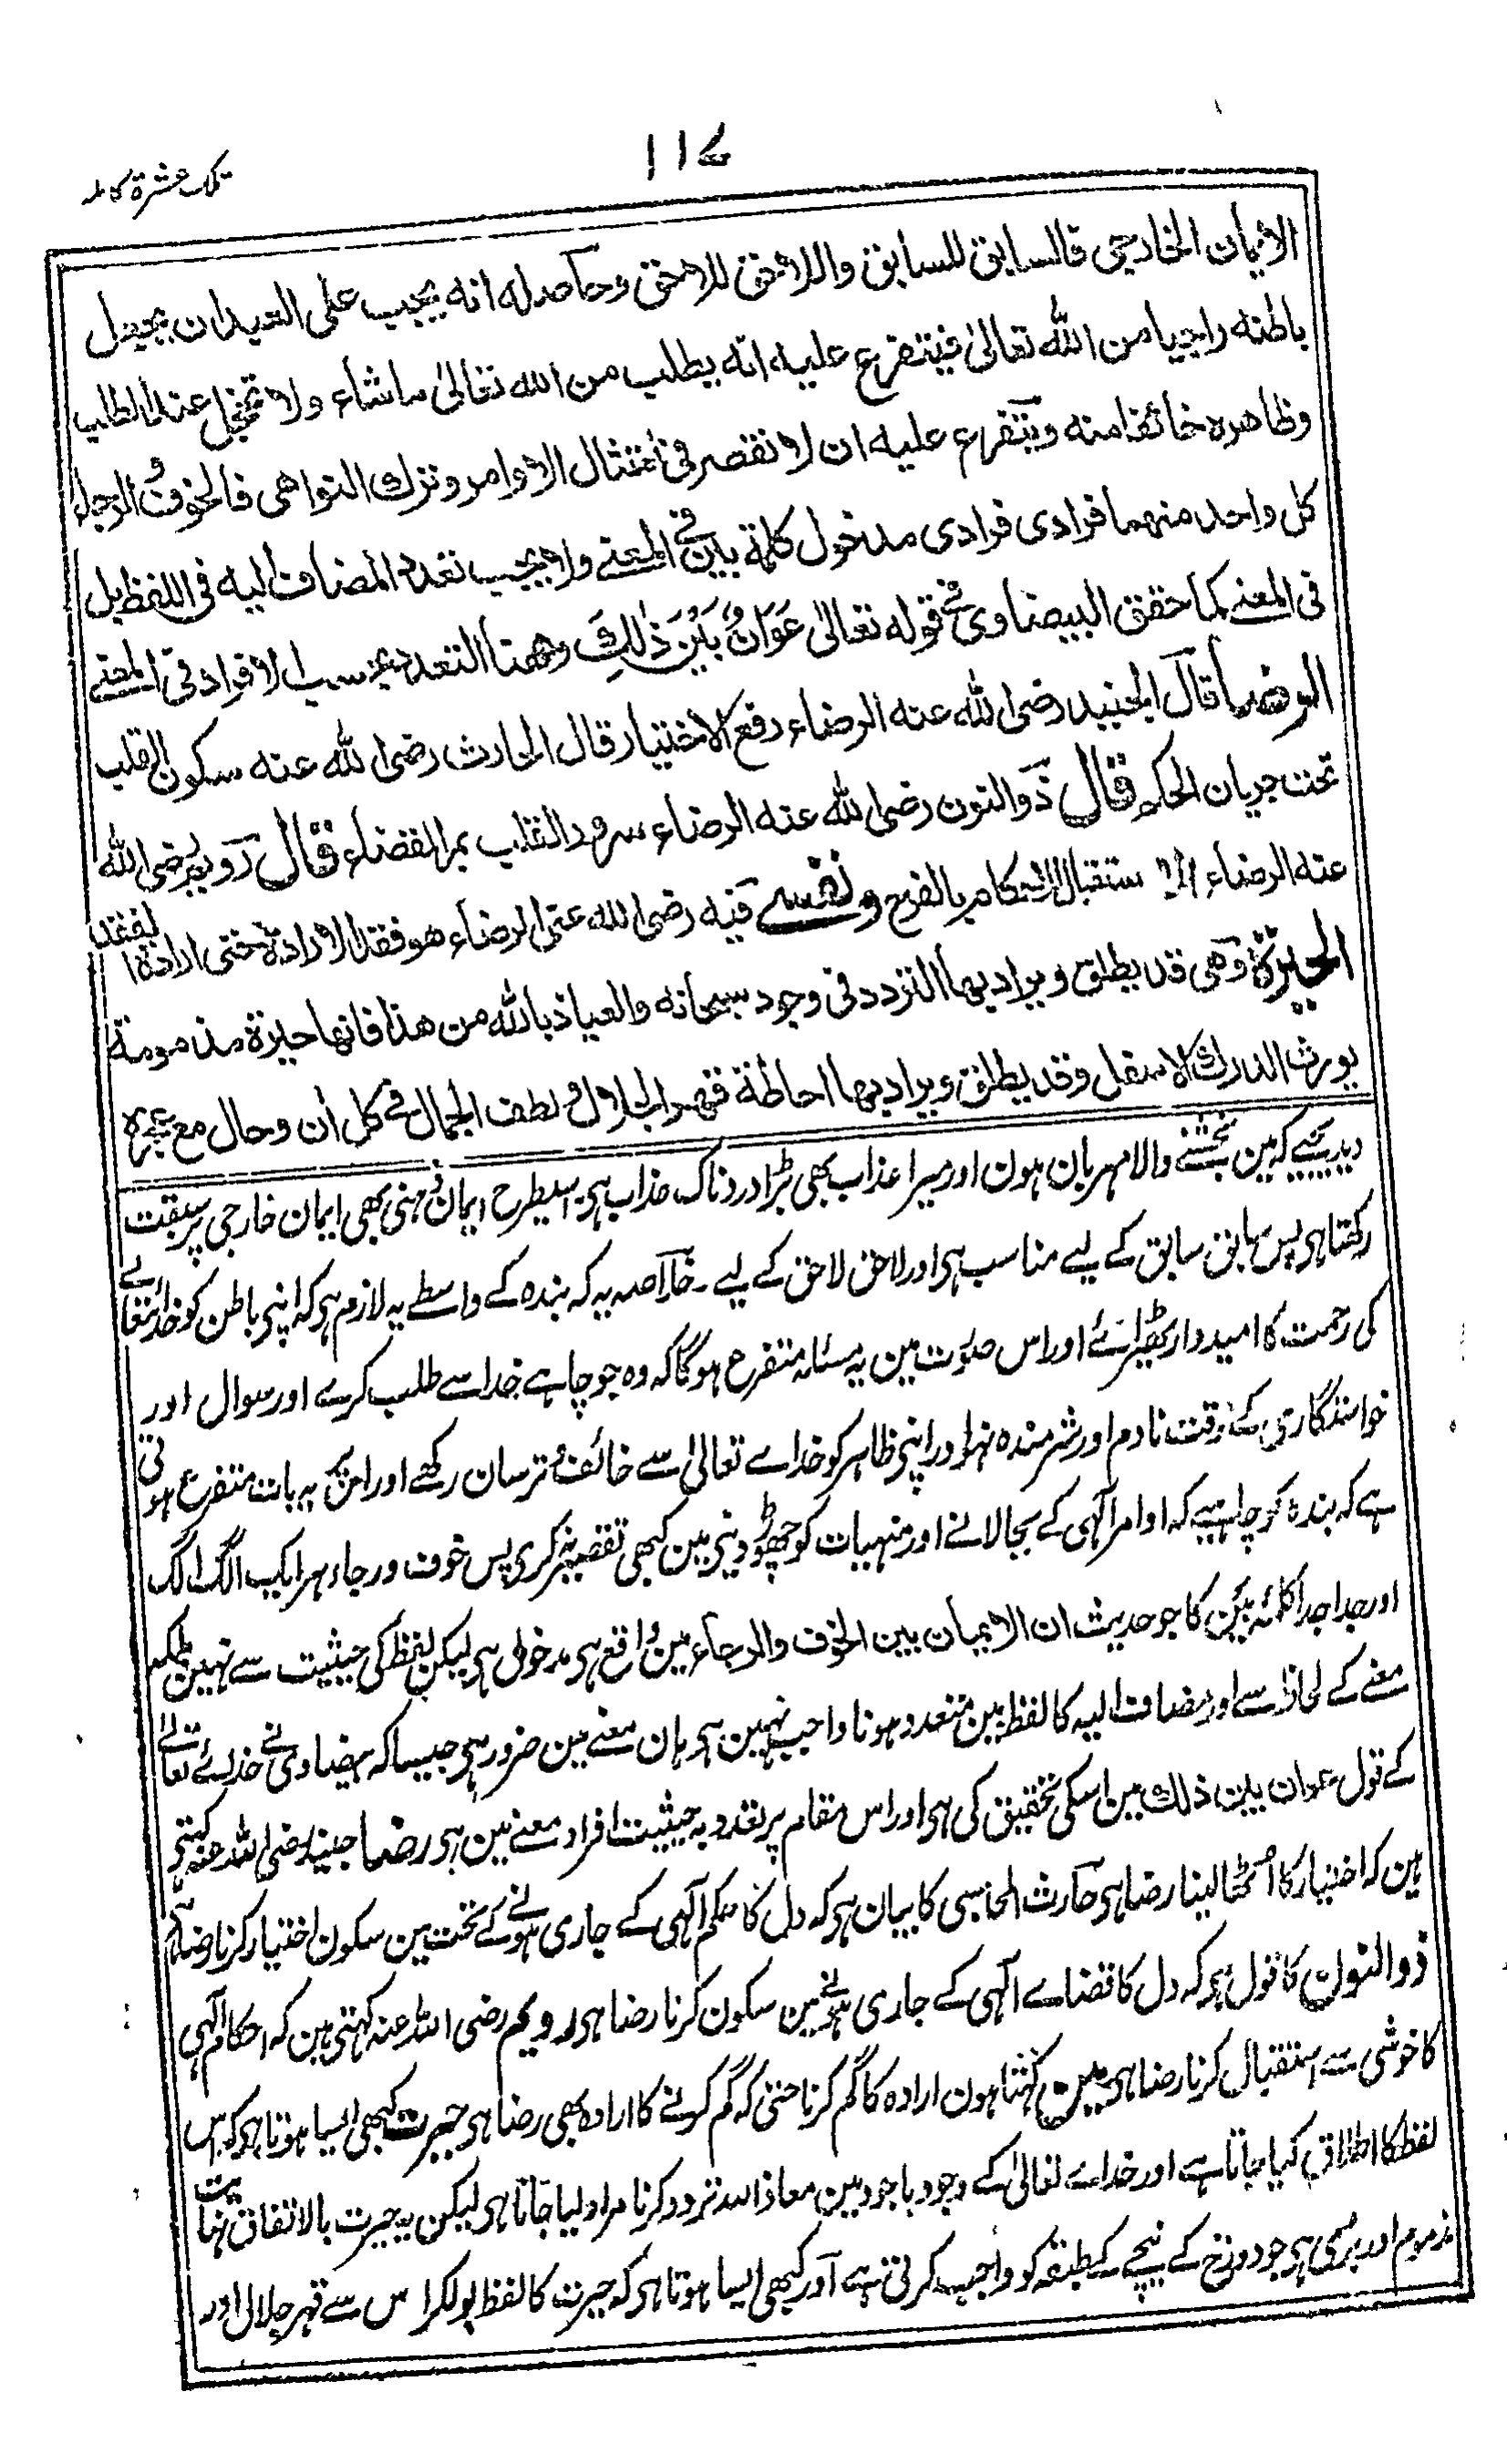 ۱۱۷
تلک عشرة کاملہ
الایمان الخارجی فالسابق للسابق واللاحق للاحق وحاصله انه یجب علی العبد ان یجعل
باطنه راجیا من الله تعالیٰ فیتفرع علیه انه یطلب من الله تعالیٰ ماشاء ولا تخجل عند الطلب
وظاهره خائفا منه ویتفرع علیه ان لا نقصر فی امتثال الاوامر وترك النواهی فالخوف والرجاء
کل واحد منهما فرادی فرادی مدخول کلمة بین فی المعنے ولا یجب تعدد المضاف الیه فی اللفظ بل
فی المعنے کما حقق البیضاوی فی قوله تعالیٰ عَوَانٌ بَیْنَ ذٰلِكَ وههنا التعدد بحسب الافراد فی المعنے
الرضا قال الجنید رضی الله عنه الرضاء رفع الاختیار قال الحارث رضی الله عنه سکون القلب
تحت جریان الحکم قال ذو النون رضی الله عنه الرضاء سرور القلب بمر القضاء قال رویم رضی الله
عنه الرضاء استقبال الاحکام بالفرح ونفسے فیه رضی الله عنی الرضاء هو فقد الارادة حتی ارادة الفقد
الحیرة وهی قد یطلق ویراد بها التردد فی وجود سبحانه والعیاذ بالله من هذا فانها حیرة مذمومة
یورث الدرك الاسفل وقد یطلق ویراد بها احاطة قهر الجلال و لطف الجمال فی کل اٰن وحال مع
دیدیجیے کہ مین بخشنے والا مہربان ہون اور میرا عذاب بھی بڑا دردناک عذاب ہی اسیطرح ایمان ذہنی بھی ایمان خارجی پر سبقت
رکھتا ہی پس سابق سابق کے لیے مناسب ہی اور لاحق لاحق کے لیے۔ خلاصہ یہ کہ بندہ کے واسطے یہ لازم ہی کہ اپنی باطن کو خدائتعالے
کی رحمت کا امیدوار ٹھیرائے اور اس صورت مین یہ مسئلہ متفرع ہوگا کہ وہ جو چاہے خدا سے طلب کرے اور سوال اور
خواستگاری کے وقت نادم اور شرمندہ نہو اور اپنی ظاہر کو خداے تعالیٰ سے خائف و ترسان رکھے اور اس پر یہ بات متفرع ہوتی
ہے کہ بندہ کو چاہیے کہ اوامر آلٰہی کے بجا لانے اور منہیات کو چھوڑ دینی مین کبھی تقصیر نہ کری پس خوف و رجاء ہر ایک الگ الگ
اور جدا جدا کلمہ بین کا جو حدیث ان الایمان بین الخوف والرجاء مین واقع ہی مدخول ہی لیکن لفظ کی حیثیت سے نہین بلکہ
معنے کے لحاظ سے اور مضاف الیہ کا لفظ مین متعدد ہونا واجب نہین ہی ہان معنے مین ضرور ہی جیسا کہ بیضاوی نے خدائے تعالے
کے قول عوان بین ذلك مین اسکی تحقیق کی ہی اور اس مقام پر تعدد بہ حیثیت افراد معنے مین ہی رضا جنید رضی اللہ عنہ کہتے
ہین کہ اختیار کا اٹھا لینا رضا ہی حارث المحاسبی کا بیان ہی کہ دل کا حکم آلٰہی کے جاری ہونے کے تحت مین سکون اختیار کرنا رضا ہے
ذوالنون کا قول ہی کہ دل کا قضاے آلٰہی کے جاری ہونے مین سکون کرنا رضا ہی رویم رضی اللہ عنہ کہتی ہین کہ احکام آلٰہی
کا خوشی سے استقبال کرنا رضا ہی مین کہتا ہون ارادہ کا گم کرنا حتی کہ گم کرنے کا ارادہ بھی رضا ہی حیرت کبھی ایسا ہوتا ہی کہ اس
لفظ کا اطلاق کیا جاتا ہے اور خداے تعالیٰ کے وجود باجود مین معاذ اللہ تردد کرنا مراد لیا جاتا ہی لیکن یہ حیرت بالاتفاق نہایت
مذموم اور بری ہی جو دوزخ کے نیچے کے طبقہ کو واجب کرتی ہے اور کبھی ایسا ہوتا ہی کہ حیرت کا لفظ بولکر اس سے قہر جلال اور